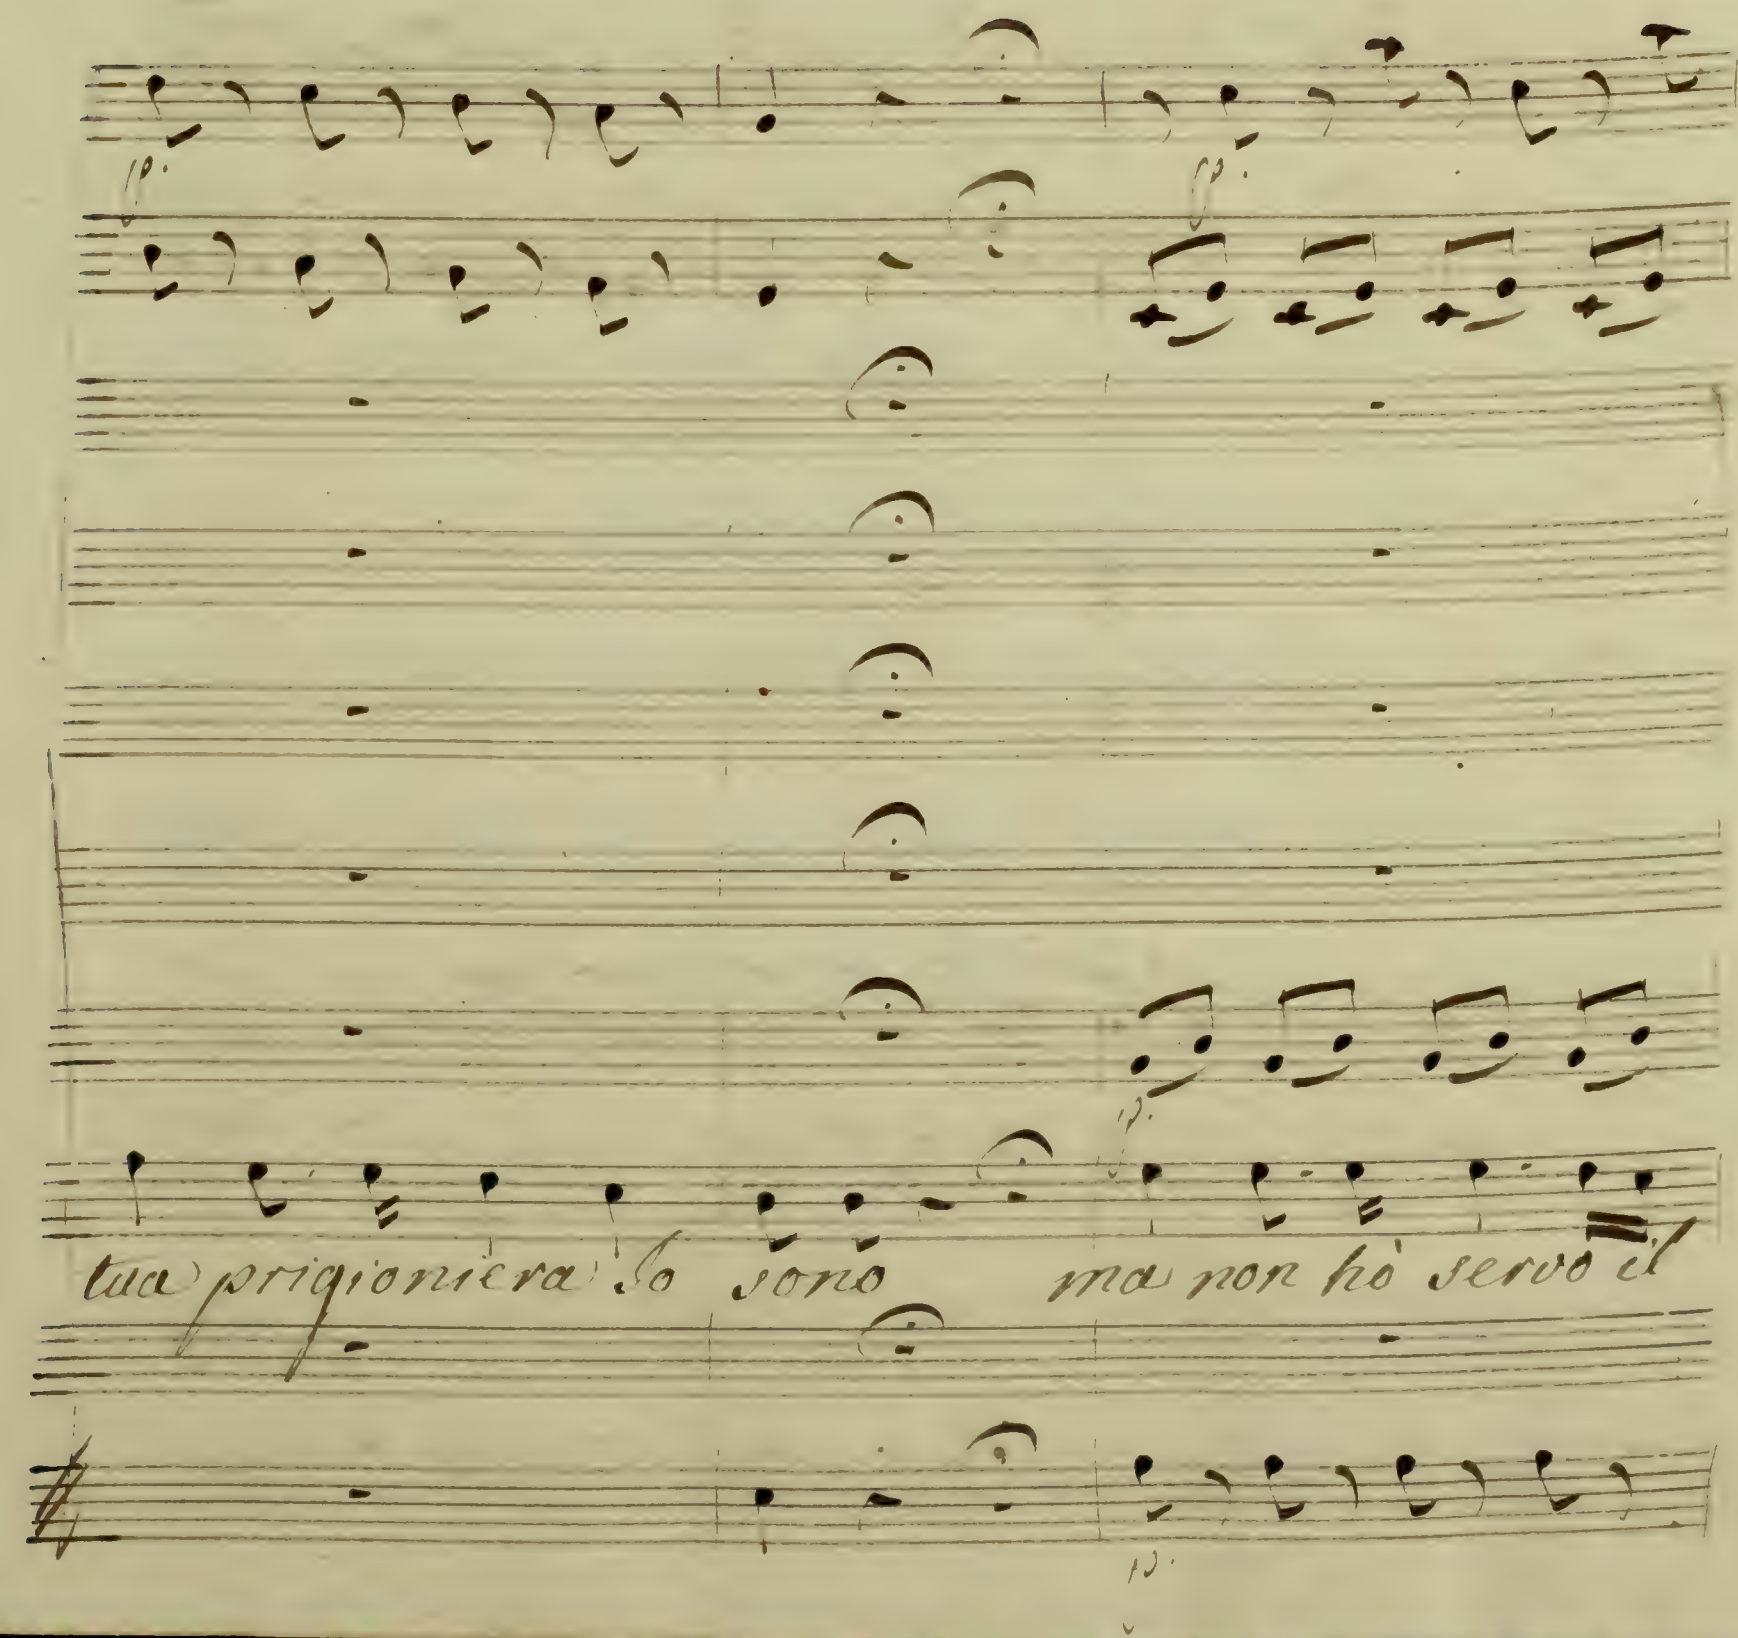 p.
p.
p.
tua prigioniera Io sono ma non hò servo il
p.